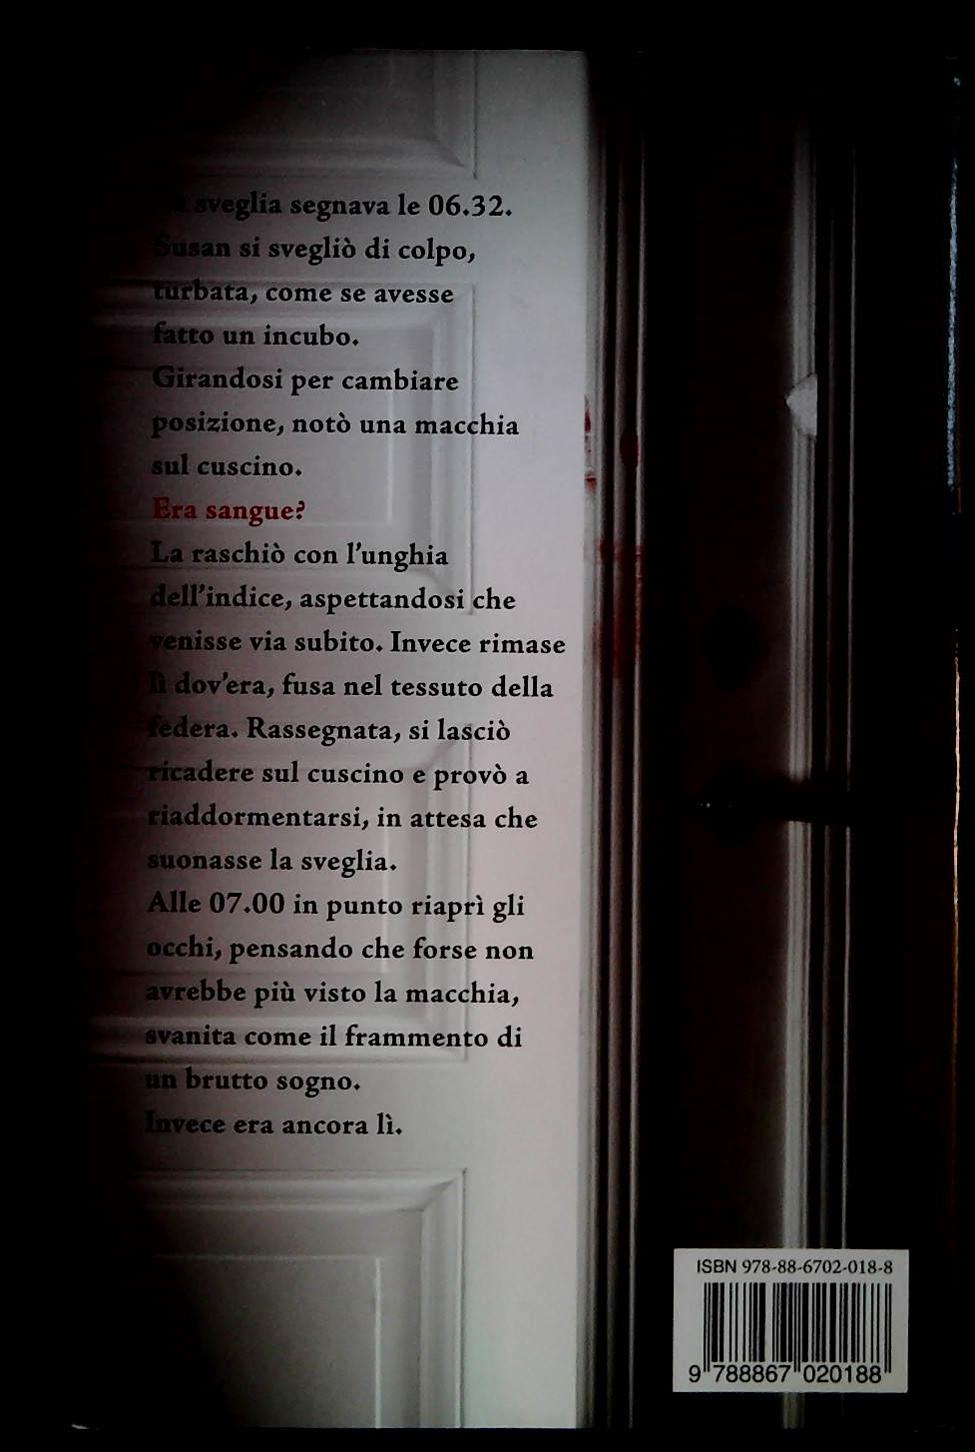 La sveglia segnava le 06.32.
Susan si svegliò di colpo,
turbata, come se avesse
fatto un incubo.
Girandosi per cambiare
posizione, notò una macchia
sul cuscino.
Era sangue?
La raschiò con l'unghia
dell'indice, aspettandosi che
venisse via subito. Invece rimase
lì dov'era, fusa nel tessuto della
federa. Rassegnata, si lasciò
ricadere sul cuscino e provò a
riaddormentarsi, in attesa che
suonasse la sveglia.
Alle 07.00 in punto riaprì gli
occhi, pensando che forse non
avrebbe più visto la macchia,
svanita come il frammento di
un brutto sogno.
Invece era ancora lì.
ISBN 978-88-6702-018-8
9 788867 020188